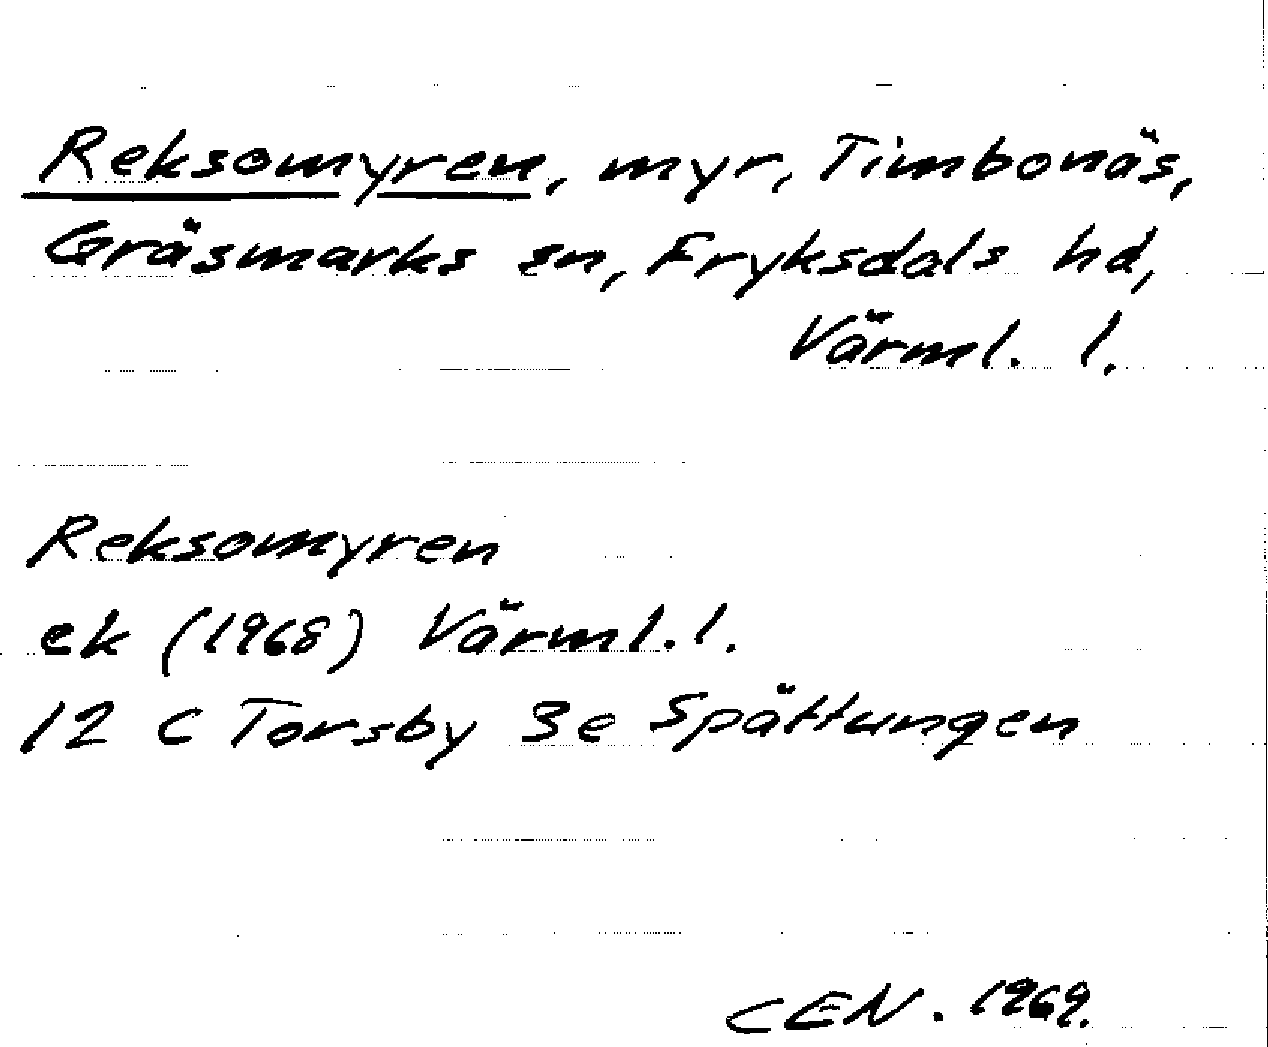 Reksomyren, myr, Timbonäs,
Gräsmarks sn, Fryksdals hd,
Värml. l.
Reksomyren
ek (1968) Värml. l.
12 C Torsby 3e Spättungen
CEN. 1969.